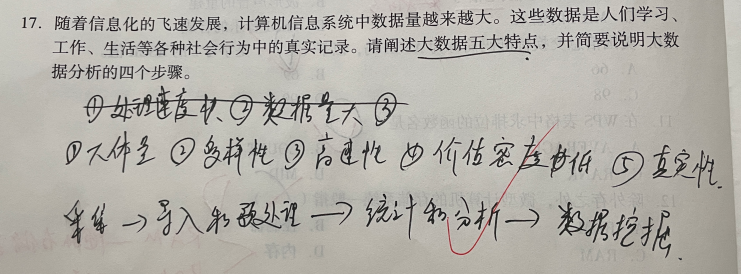 17. 随着信息化的飞速发展，计算机信息系统中数据量越来越大。这些数据是人们学习、
工作、生活等各种社会行为中的真实记录。请阐述大数据五大特点，并简要说明大数
据分析的四个步骤。
①处理速度快、②数据量大 ③
①大体量 ②多样性 ③高速性 ④价值密度低 ⑤真实性.
采集→导入和预处理→统计和分析→数据挖掘.